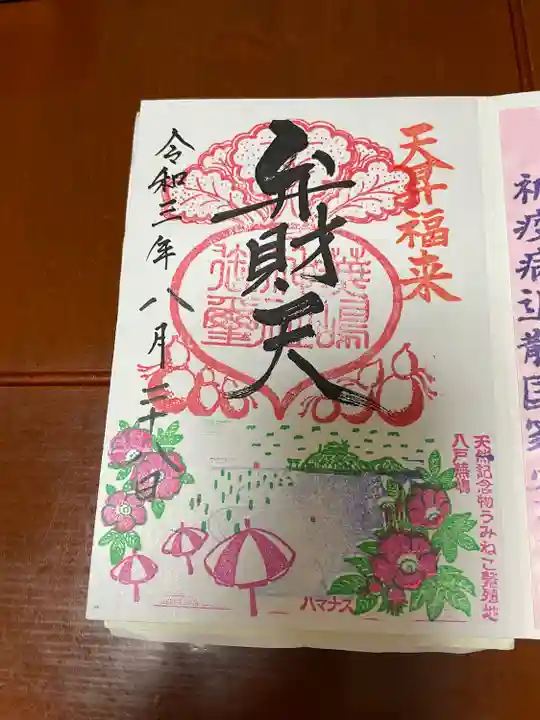 天昇福来
弁財天
令和三年八月二十八日
蕪嶋
天然記念物うみねこ繁殖地
八戸蕪嶋
ハマナス